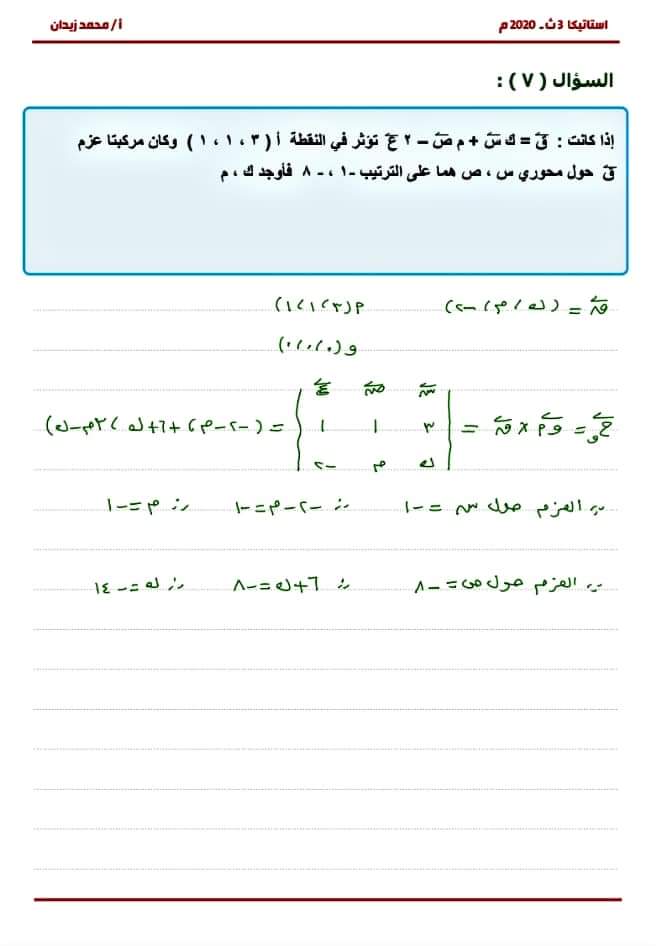 استاتيكا 3 ث ـ 2020 م
أ / محمد زيدان
السؤال ( ٧ ) :
إذا كانت : ق = ك س + م ص – ٢ ع تؤثر في النقطة أ ( ٣ ، ١ ، ١ ) وكان مركبتا عزم
ق حول محوري س ، ص هما على الترتيب -١ ، - ٨ فأوجد ك ، م
ق = (ك ، م ، -٢) م(٣،١،١)
و(٠،٠،٠)
س ص ع
ج و = وم × ق = | ٣ ١ ١ | = (-٢-م ، ٦+ك ، ٣م-ك)
ك م -٢
∵ العزم حول س = -١ ∴ -٢-م=-١ ∴ م=-١
∵ العزم حول ص = -٨ ∴ ٦+ك=-٨ ∴ ك=-١٤